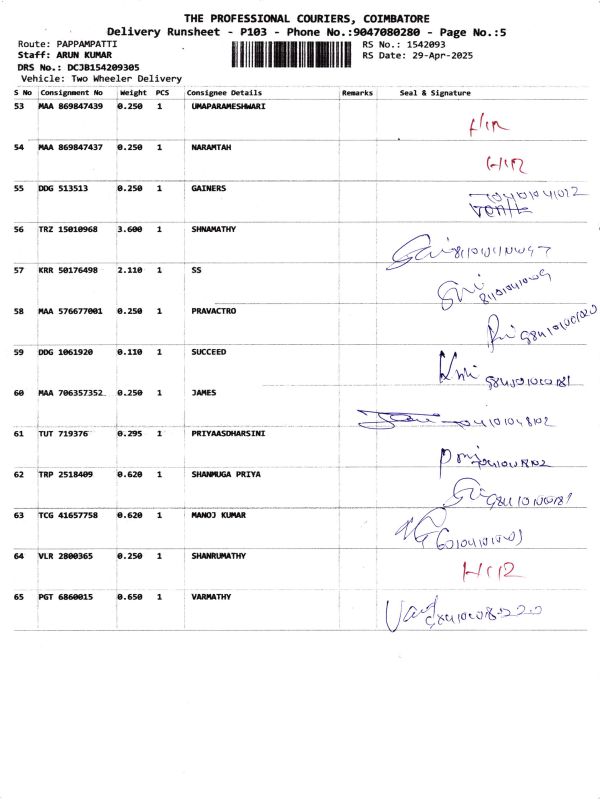 THE PROFESSIONAL COURIERS, COIMBATORE
Delivery Runsheet - P103 - Phone No.:9047080280 - Page No.:5
Route: PAPPAMPATTI RS No.: 1542093
Staff: ARUN KUMAR RS Date: 29-Apr-2025
DRS No.: DCJB154209305
Vehicle: Two Wheeler Delivery
S No Consignment No Weight PCS Consignee Details Remarks Seal & Signature
53 MAA 869847439 0.250 1 UMAPARAMESHWARI
54 MAA 869847437 0.250 1 NARAMTAH
55 DDG 513513 0.250 1 GAINERS
56 TRZ 15010968 3.600 1 SHNAMATHY
57 KRR 50176498 2.110 1 SS
58 MAA 576677001 0.250 1 PRAVACTRO
59 DDG 1061920 0.110 1 SUCCEED
60 MAA 706357352 0.250 1 JAMES
61 TUT 719376 0.295 1 PRIYAASDHARSINI
62 TRP 2518409 0.620 1 SHANMUGA PRIYA
63 TCG 41657758 0.620 1 MANOJ KUMAR
64 VLR 2800365 0.250 1 SHANRUMATHY
65 PGT 6860015 0.650 1 VARMATHY